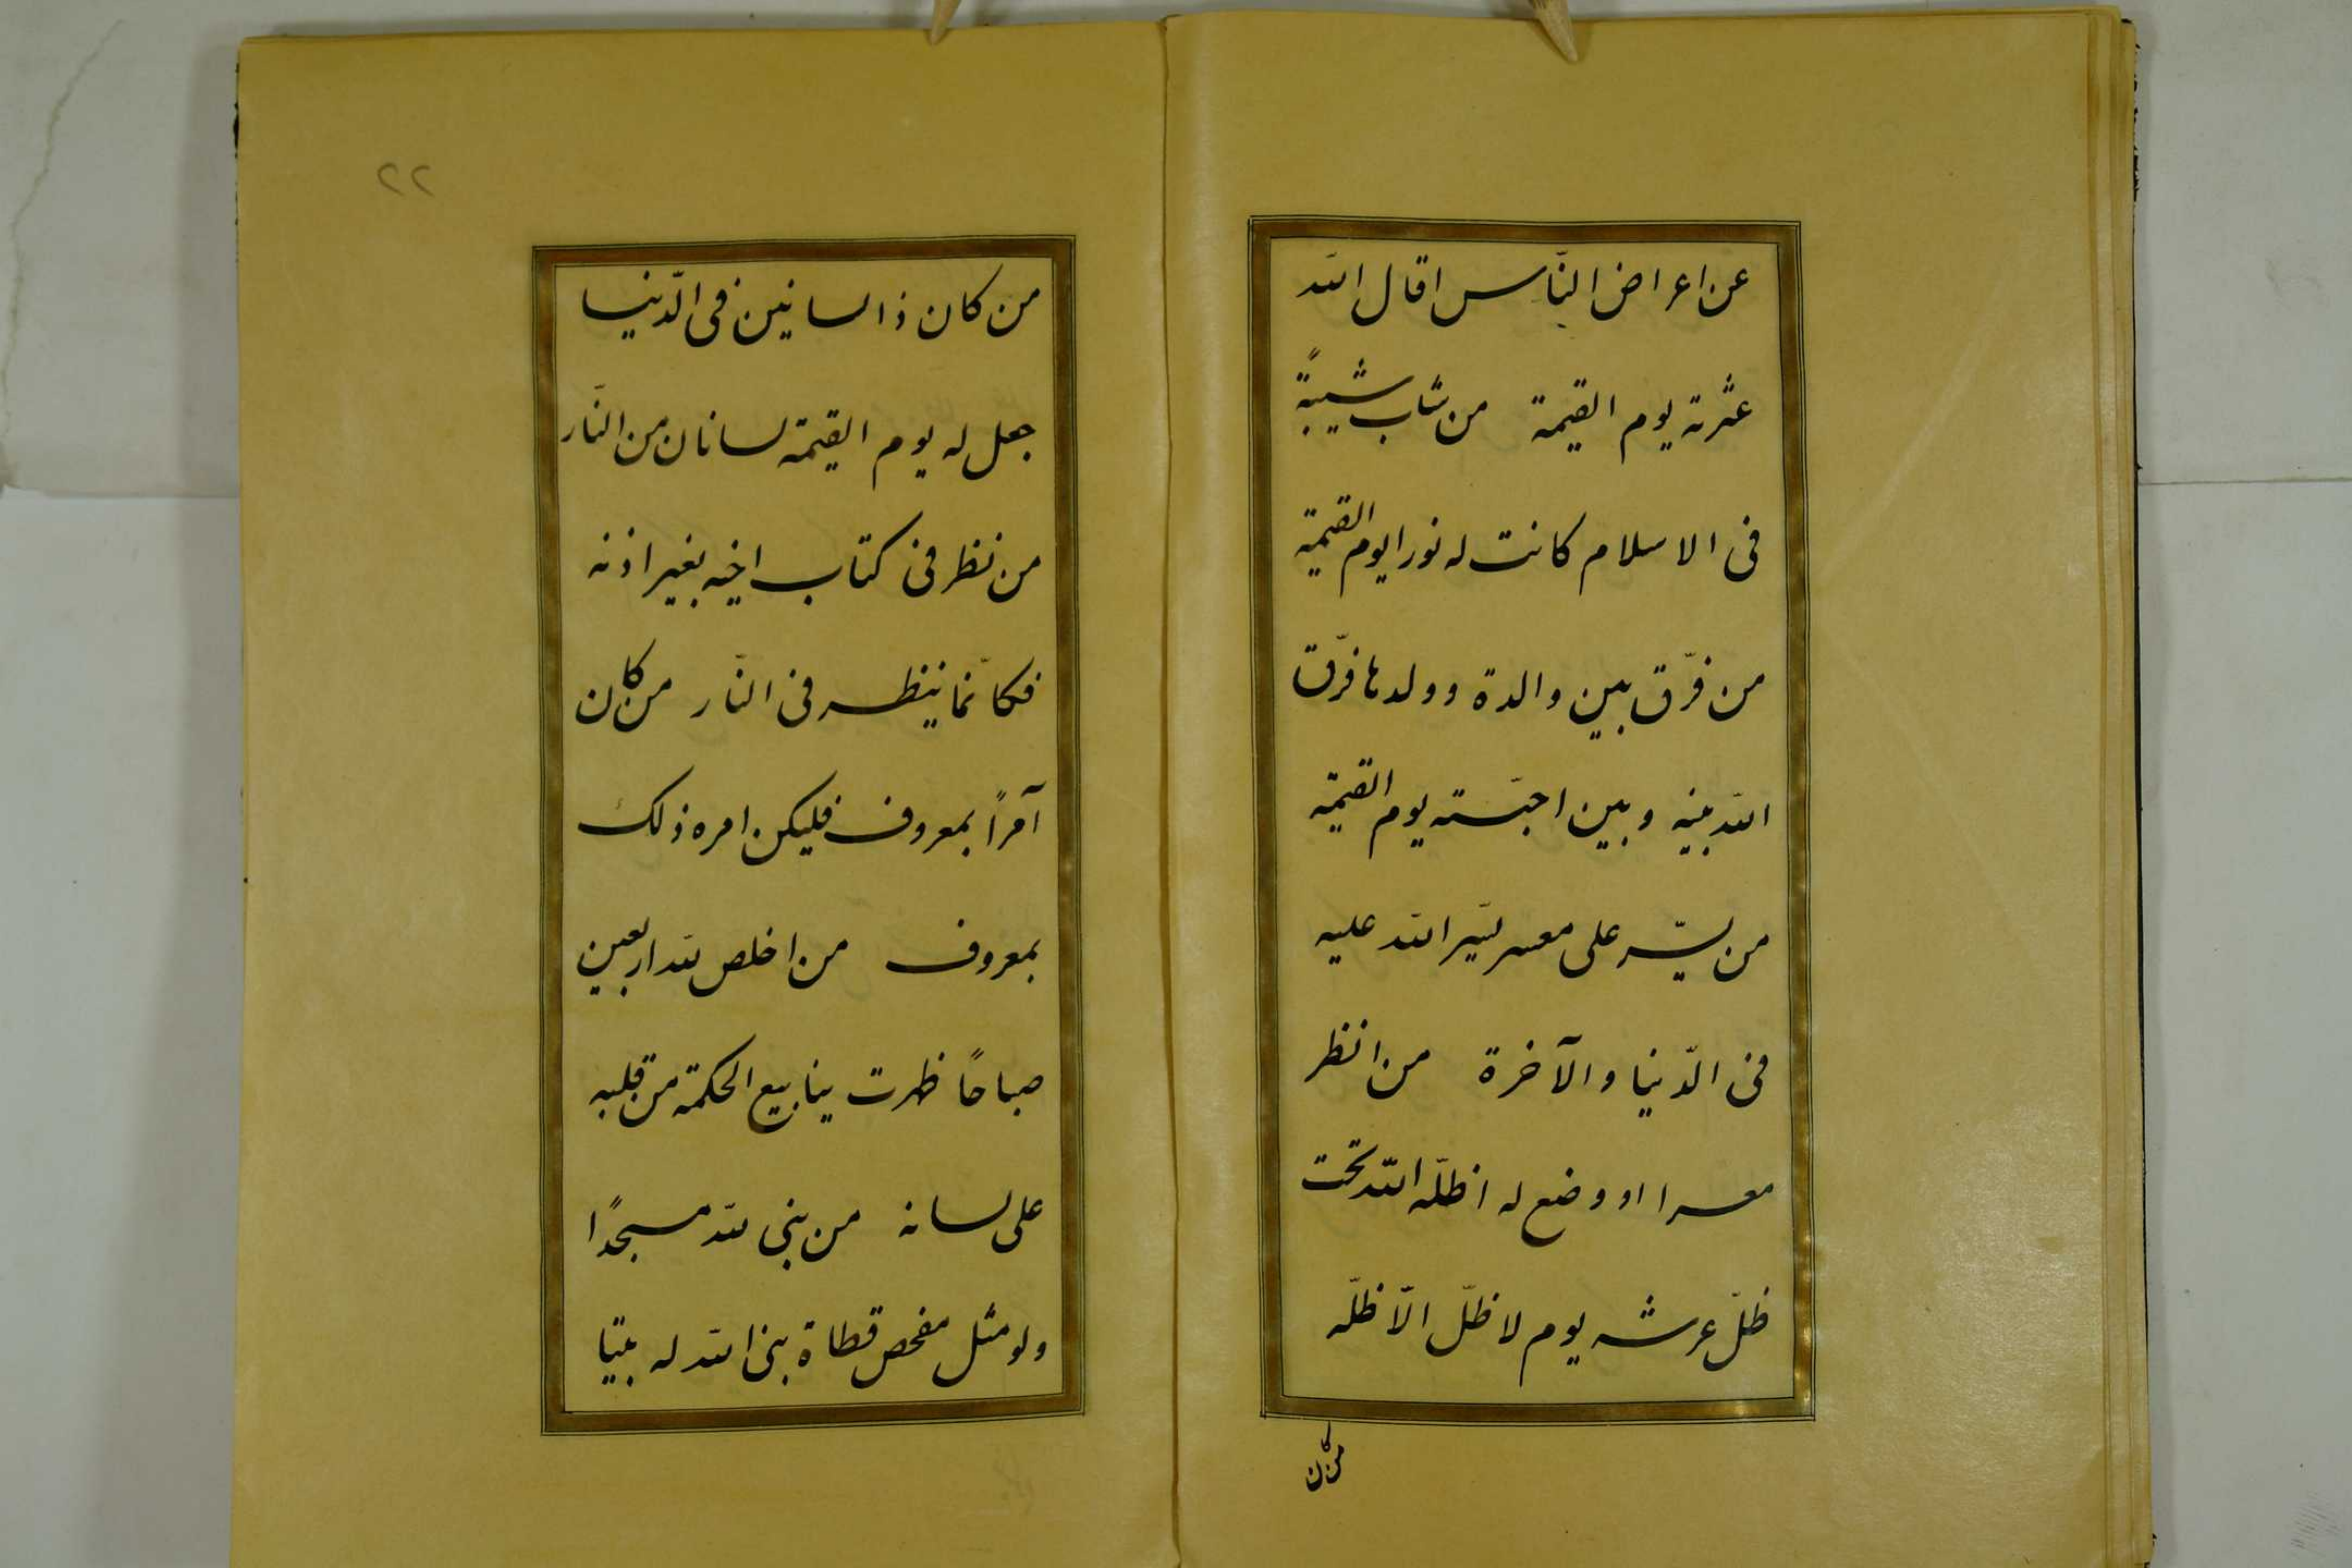 عن اعراض النّاس اقال الله
عثرته يوم القيمة من شاب شيبةً
فى الاسلام كانت له نورا يوم القيمة
من فرّق بين والدة وولدها فرّق
الله بينه و بين احبّته يوم القيمة
من يسّر على معسر يسّر الله عليه
فى الدّنيا والآخرة من انظر
معسرا او وضع له اظلّه الله تحت
ظلّ عرشه يوم لا ظلّ الّا ظلّه
من كان
٢٢
من كان ذا لسانين فى الدّنيا
جعل له يوم القيمة لسانان من النّار
من نظر فى كتاب اخيه بغير اذنه
فكانّما ينظر فى النّار من كان
آمراً بمعروف فليكن امره ذلك
بمعروف من اخلص لله اربعين
صباحًا ظهرت ينابيع الحكمة من قلبه
على لسانه من بنى لله مسجدًا
ولو مثل مفحص قطاة بنى الله له بيتا